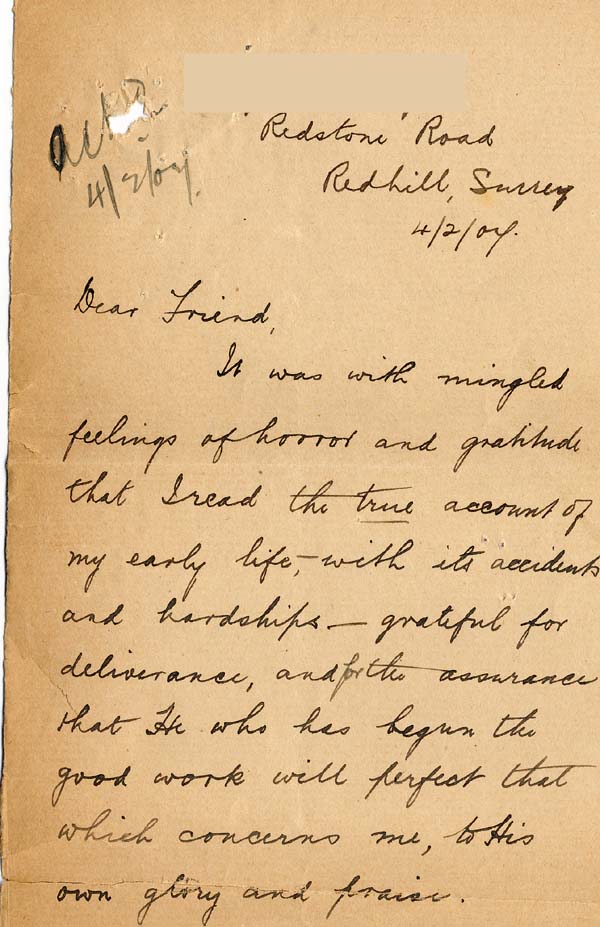 ackd
4/2/07.
"Redstone" Road
Redhill, Surrey
4/2/07.
Dear Friend,
It was with mingled
feelings of horror and gratitude
that I read the true account of
my early life, – with its accidents
and hardships – grateful for
deliverance, and for the assurance
that He who has begun the
good work will perfect that
which concerns me, to His
own glory and praise.